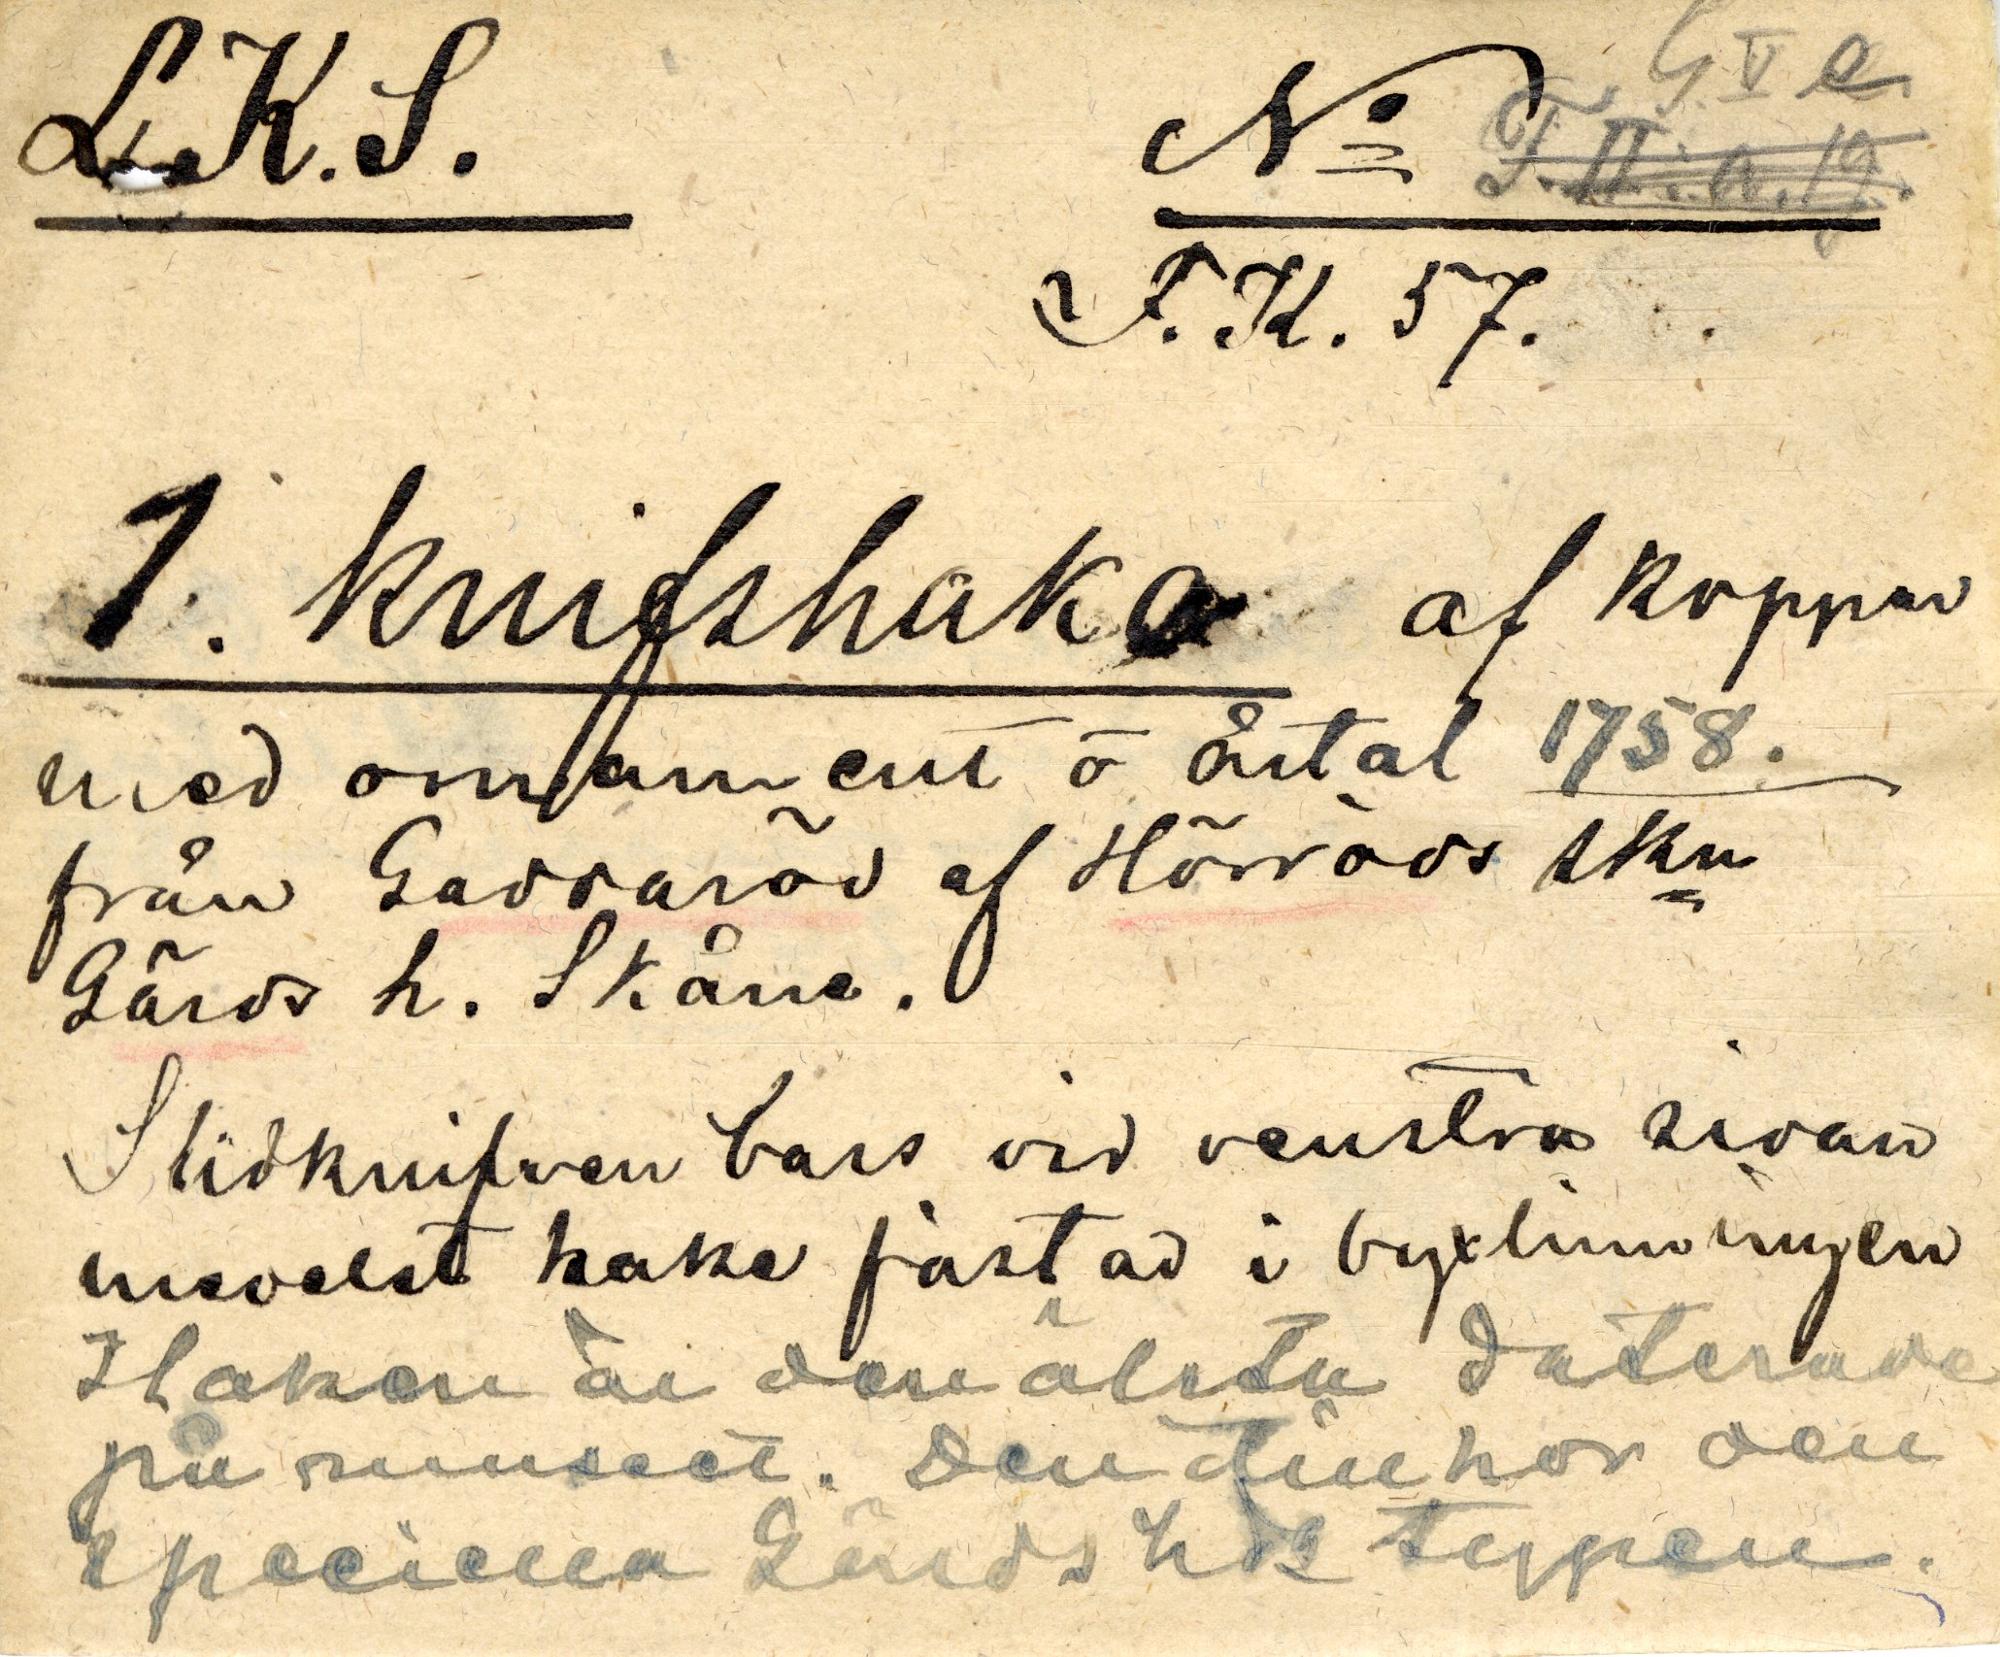 L.K.S.
G V e
Nº F.II.a.19.
F.K. 57.
1. knifshake af koppar
med ornament o årtal 1758.
från Gaddaröd af Hörröds skn
Gärds h. Skåne.
Slidknifven bars vid venstra sidan
medelst hake fästad i byxlinningen
Haken är den älsta daterade
på museet. Den tillhör den
speciella Gärds hds typen.